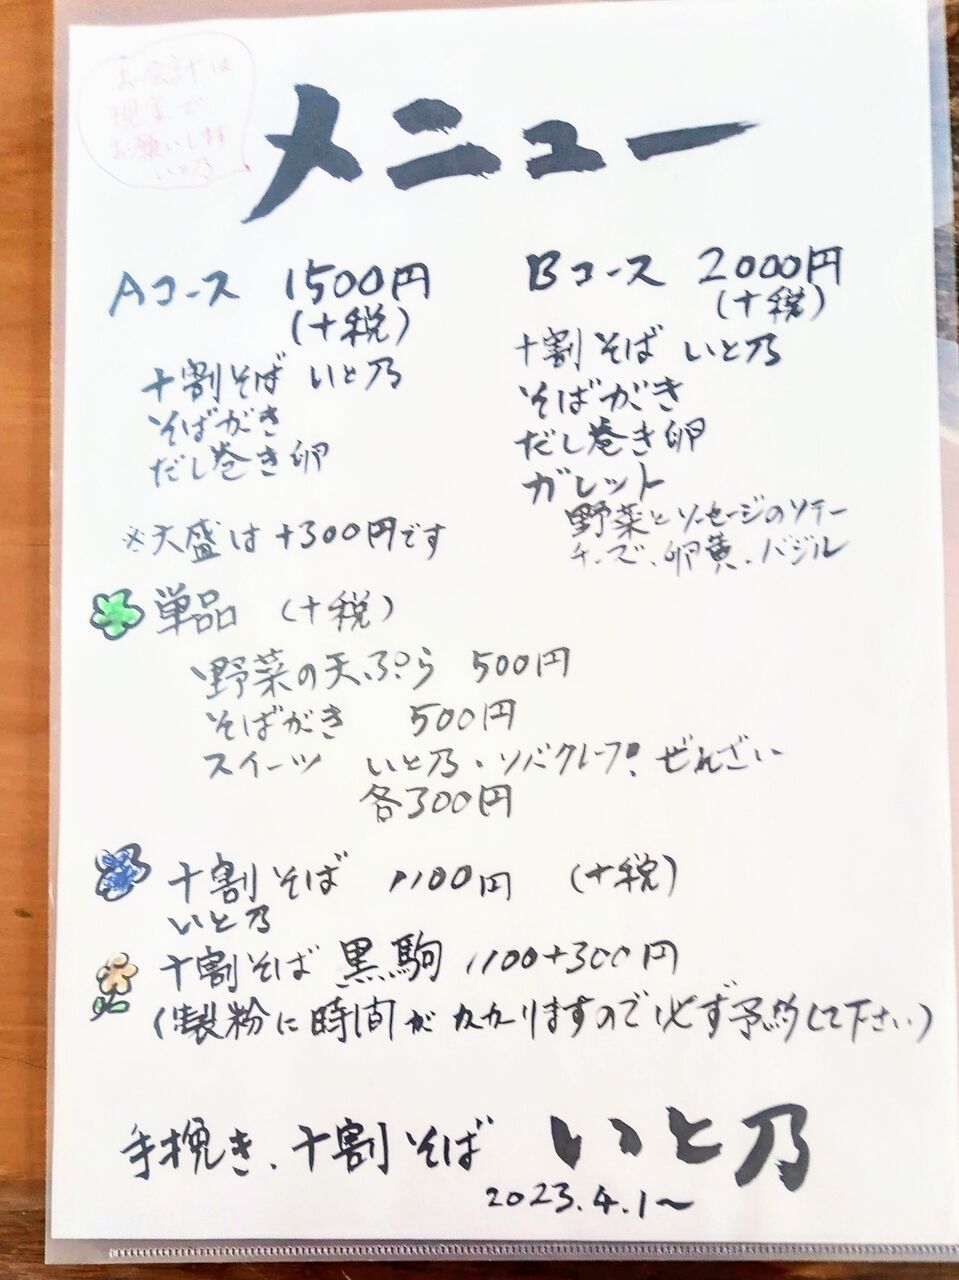 お会計は
現金で
お願いします
いと乃
メニュー
Aコース 1500円
(+税)
十割そば いと乃
そばがき
だし巻き卵
※天盛は+300円です
Bコース 2000円
(+税)
十割そば いと乃
そばがき
だし巻き卵
ガレット
野菜とソーセージのソテー
チーズ、卵黄、バジル
単品 (+税)
野菜の天ぷら 500円
そばがき 500円
スイーツ いと乃・ソバクレープ、ぜんざい
各300円
十割そば 1100円 (+税)
いと乃
十割そば 黒駒 1100+300円
(製粉に時間がかかりますので必ず予約して下さい)
手挽き、十割そば いと乃
2023.4.1~